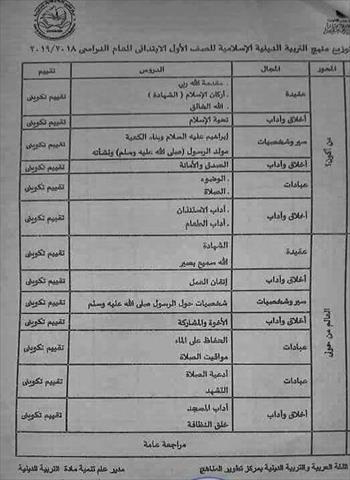 توزيع منهج التربية الدينية الإسلامية للصف الأول الابتدائى للعام الدراسى ٢٠١٩/٢٠١٨
المحور المجال الدروس تقييم
من أكون؟
عقيدة
. مقدمة الله ربي
. أركان الإسلام ( الشهادة )
. الله الخالق
تقييم تكوينى
أخلاق وآداب تحية الإسلام تقييم تكوينى
سير وشخصيات
إبراهيم عليه السلام وبناء الكعبة
مولد الرسول (صلى الله عليه وسلم) ونشأته
تقييم تكوينى
أخلاق وآداب الصدق والأمانة تقييم تكوينى
عبادات
. الوضوء
. الصلاة
تقييم تكوينى
أخلاق وآداب
. آداب الاستئذان
. آداب الطعام
تقييم تكوينى
العالم من حولى
عقيدة
الشهادة
الله سميع بصير
تقييم تكوينى
أخلاق وآداب إتقان العمل تقييم تكوينى
سير وشخصيات شخصيات حول الرسول صلى الله عليه وسلم تقييم تكوينى
أخلاق وآداب الأخوة والمشاركة تقييم تكوينى
عبادات
الحفاظ على الماء
مواقيت الصلاة
تقييم تكوينى
عبادات
أدعية الصلاة
التشهد
تقييم تكوينى
أخلاق وآداب
آداب المسجد
خلق النظافة
تقييم تكوينى
مراجعة عامة
اللغة العربية والتربية الدينية بمركز تطوير المناهج
مدير عام تنمية مادة التربية الدينية